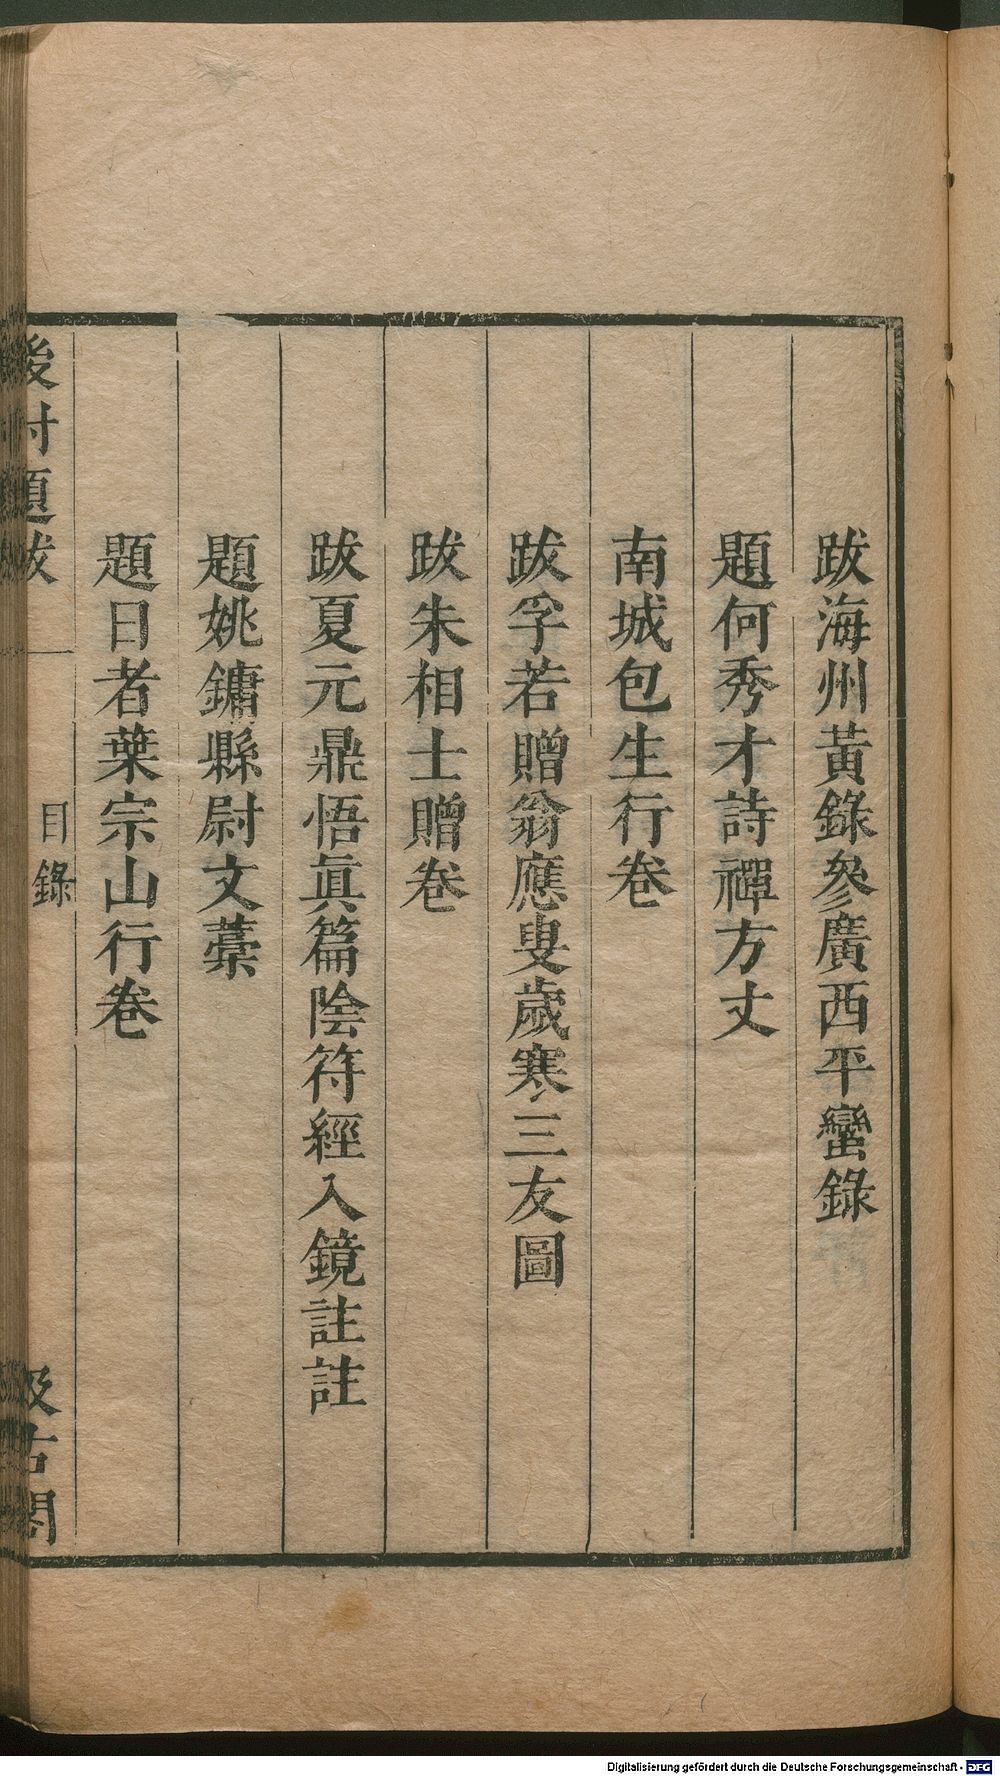 跋海州黃錄參廣西平蠻錄
題何秀才詩禪方丈
南城包生行卷
跋孚若贈翁應叟歲寒三友圖
跋朱相士贈卷
跋夏元鼎悟眞篇陰符經入鏡註註
題姚鏞縣尉文藁
題日者葉宗山行卷
後村題跋 目錄 汲古閣
Digitalisierung gefördert durch die Deutsche Forschungsgemeinschaft - DFG